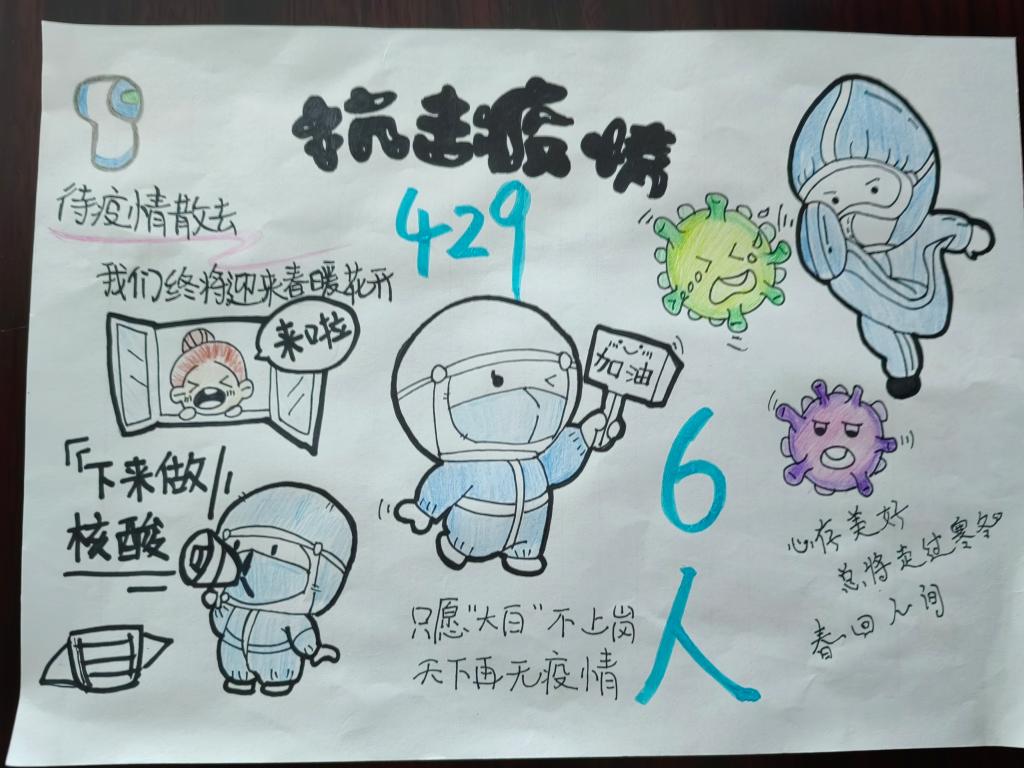 抗击疫情
429
待疫情散去
我们终将迎来春暖花开
来啦
加油
「下来做
核酸
6
人
心存美好
总将走过寒冬
春回人间
只愿“大白”不上岗
天下再无疫情